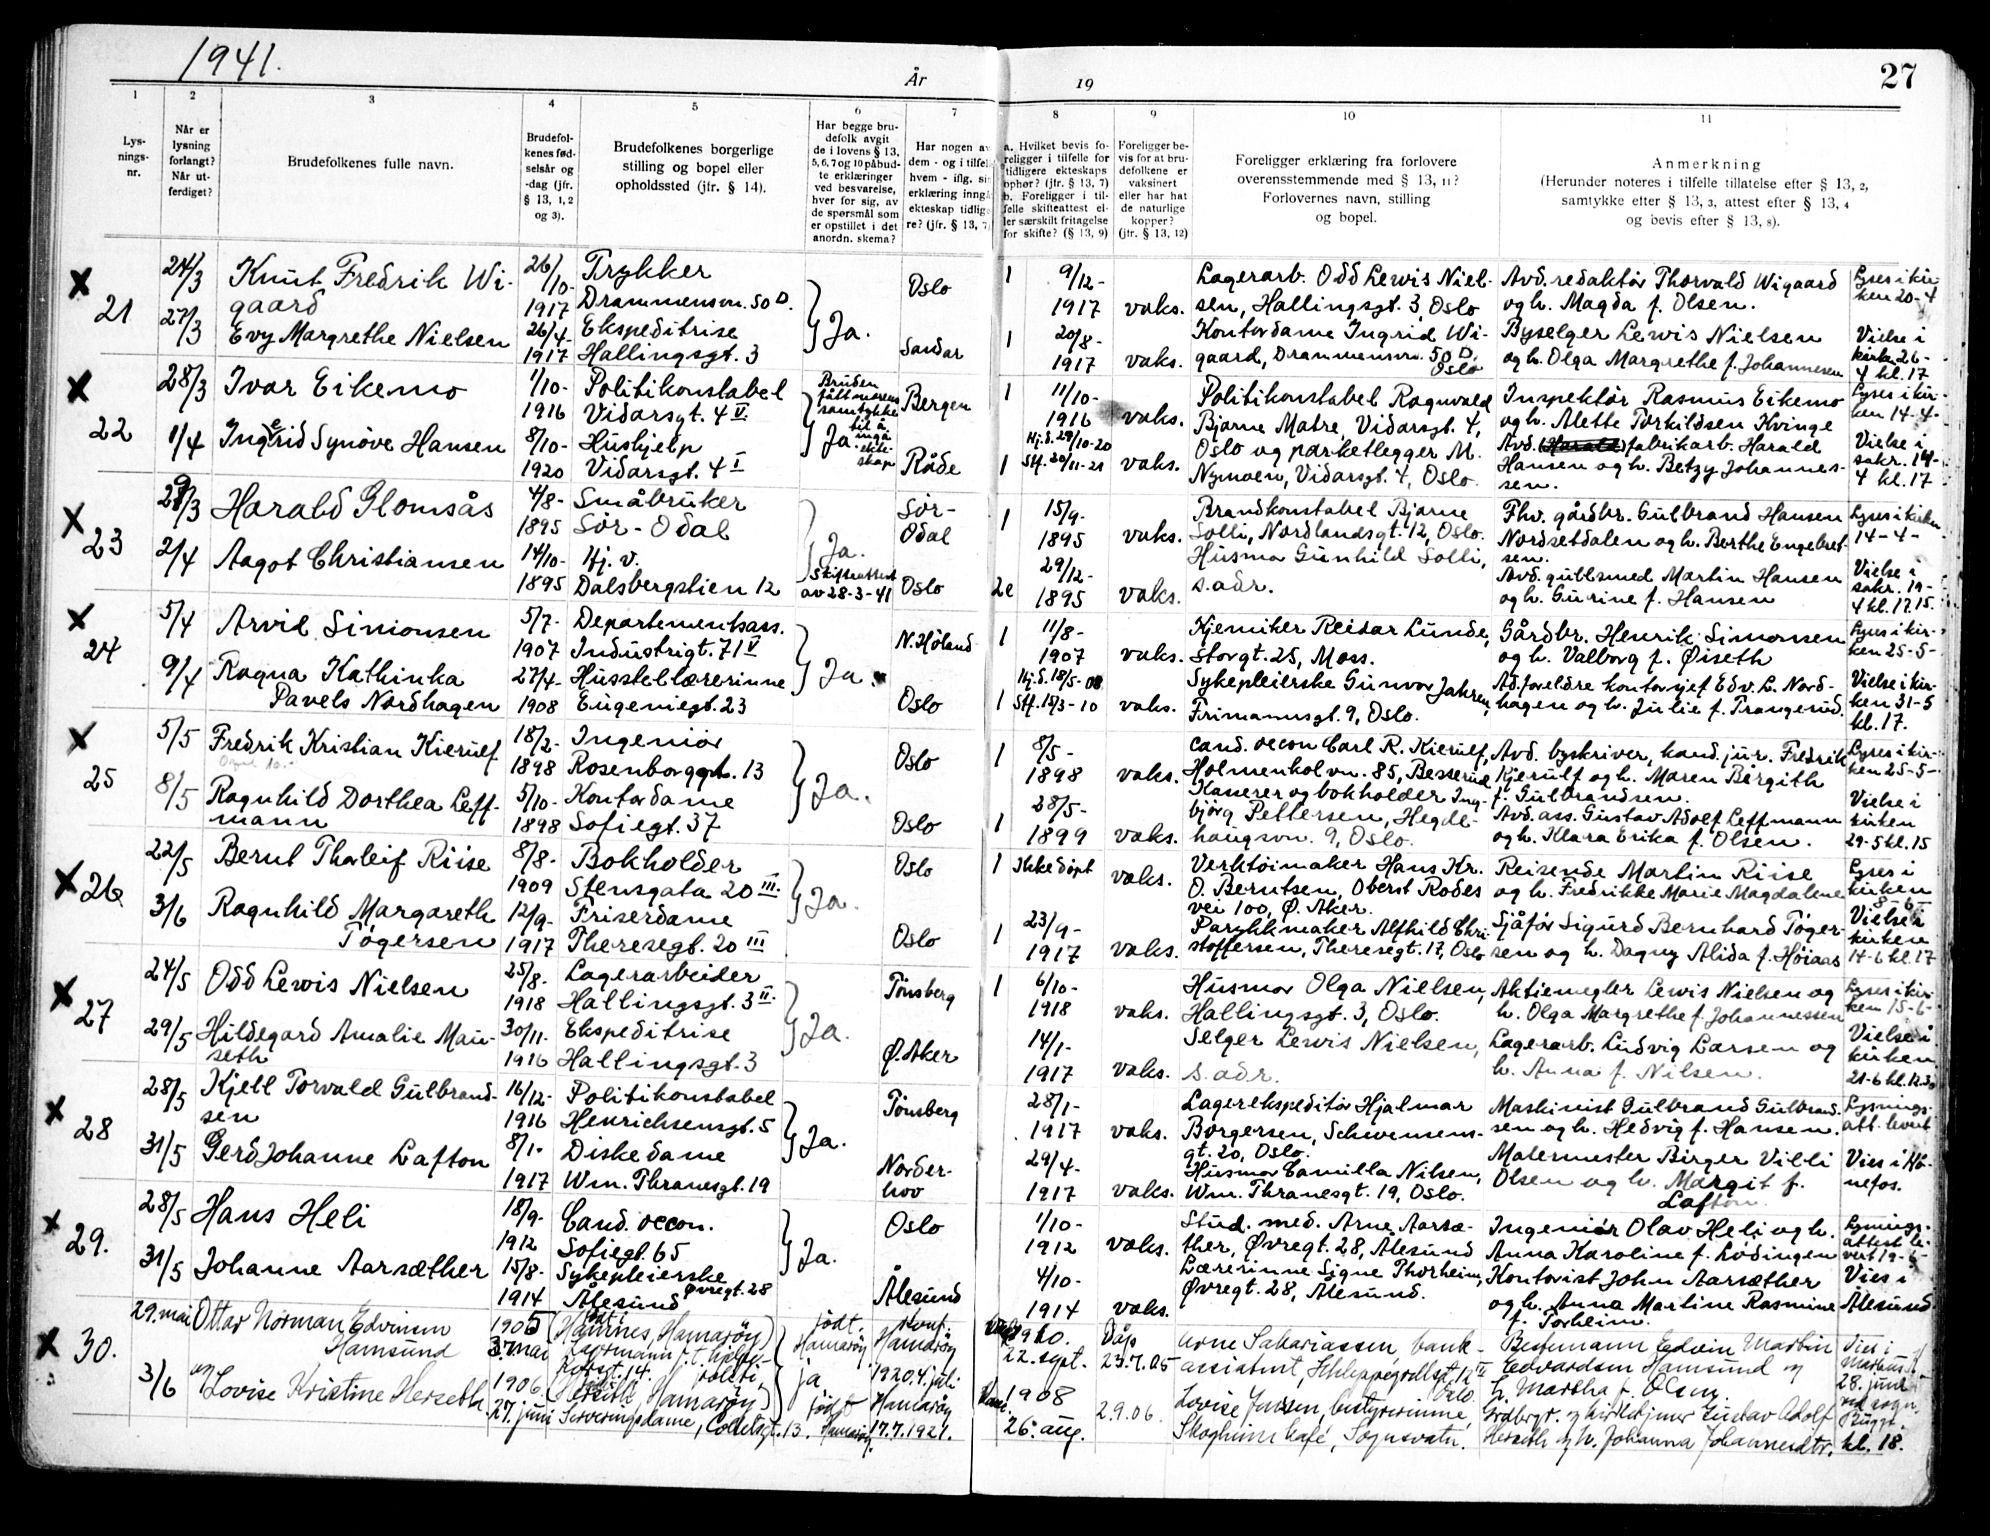 1941.
År
19
27
1
2
3
4
5
6
7
8
9
10
11
Lys-
nings-
nr.
Når er
lysning
forlangt?
Når ut-
ferdiget?
Brudefolkenes fulle navn.
Brudefol-
kenes fød-
selsår og
-dag (jfr.
§ 13, 1, 2
og 3).
Brudefolkenes borgerlige
stilling og bopel eller
opholdssted (jfr. § 14).
Har begge bru-
defolk avgit
de i lovens § 13,
5, 6, 7 og 10 påbud-
te erklæringer
ved besvarelse,
hver for sig, av
de spørsmål som
er opstillet i det
anordn. skema?
Har nogen av
dem - og i tilfel
hvem - iflg. si
erklæring inngå
ekteskap tidlig
re? (jfr. § 13, 7
a. Hvilket bevis fo-
religger i tilfelle for
tidligere ekteskaps
ophør? (jfr. § 13, 7)
b. Foreligger i til-
felle skifteattest el-
ler særskilt fritagelse
for skifte? (§ 13, 9)
Foreligger be-
vis for at bru-
defolkene er
vaksinert
eller har hat
de naturlige
kopper?
(jfr. § 13, 12)
Foreligger erklæring fra forlovere
overensstemmende med § 13, 11?
Forlovernes navn, stilling
og bopel.
Anmerkning
(Herunder noteres i tilfelle tillatelse efter § 13, 2,
samtykke efter § 13, 3, attest efter § 13, 4
og bevis efter § 13, 8).
x 21
24/3
27/3
Knut Fredrik Wi-
gaard
Evy Margrethe Nielsen
26/10-
1917
26/4-
1917
Trykker
Drammensvn. 50 D.
Ekspeditrise
Hallingsgt. 3
Ja.
Oslo
Sandar
1 9/12-
1917 vaks.
1 20/8-
1917 vaks.
Lagerarb. Odd Lewis Niel-
sen, Hallingsgt. 3, Oslo
Kontordame Ingrid Wi-
gaard, Drammensvn. 50 D.
Oslo
Avd. redaktør Thorvald Wigaard
og h. Magda f. Olsen.
Byselger Lewis Nielsen
og h. Olga Margrethe f. Johannesen
Lyses i kir-
ken 20-4
Vielse i
kirken 26-
4 kl. 17
x 22
28/3
1/4
Ivar Eikemo
Ingerid Synøve Hansen
1/10-
1916
8/10-
1920
Politikonstabel
Vidarsgt. 4 V
Hushjelp
Vidarsgt. 4 I
Bruden
fått morens
samtykke
til å
inngå
ekte-
skap
Ja.
Bergen
Råde
1 11/10-
1916 vaks.
Hj.d. 29/10-20
1 Stf. 20/11-21 vaks.
Politikonstabel Ragnvald
Bjarne Matre, Vidarsgt. 4,
Oslo og parketlegger M.
Nymoen, Vidarsgt. 4, Oslo.
Inspektør Rasmus Eikemo
og h. Alette Torkildsen Kvinge
Avd. fabrikarb. Harald
Hansen og h. Betzy Johannes-
sen.
Lyses i kir-
ken 14-4-
Vielse i
sakr. 14-
4 kl. 17
x 23
29/3
2/4
Harald Glomsås
Aagot Christiansen
4/8-
1895
14/10-
1895
Småbruker
Sør-Odal
Hj. v.
Dalsbergstien 12
Ja.
Skifteattest
av 28-3-41
Sør-
Odal
Oslo
1 15/9-
1895 vaks.
2e 29/12-
1895 vaks.
Brandkonstabel Bjarne
Solli, Nordlandsgt. 12, Oslo.
Husmor Gunhild Solli,
s. adr.
Fhv. gårdbr. Gulbrand Hansen
Nordsetdalen og h. Berthe Engebret-
sen.
Avd. gullsmed Martin Hansen
og h. Gurine f. Hansen
Lyses i kirken
14-4-
Vielse i
sakr. 19-
4 kl. 17.15.
x 24
5/4
9/4
Arvid Simonsen
Ragna Kathinka
Pavels Nordhagen
5/7-
1907
27/4-
1908
Departementsass.
Industrigt. 71 V
Husstellærerinne
Eugeniegt. 23
Ja.
N. Høland
Oslo
1 11/8-
1907 vaks.
Hj.d. 18/5-08
1 Stf. 13/3-10 vaks.
Kjemiker Reidar Lunde,
Storgt. 25, Moss.
Sykepleierske Gunvor Jahren,
Frimannsgt. 9, Oslo.
Gårdbr. Henrik Simonsen
og h. Valborg f. Øiseth
Ad. foreldre kontorsjef Edv. L. Nord-
hagen og h. Julie f. Trangerud.
Lyses i kir-
ken 25-5-
Vielse i kir-
ken 31-5
kl. 17.
x 25
5/5
8/5
Fredrik Kristian Kierulf
Ragnhild Dorthea Leff-
mann
18/2-
1898
5/10-
1898
Ingeniør
Rosenborggt. 13
Kontordame
Sofiegt. 37
Ja.
Oslo
Oslo
1 8/5-
1898 vaks.
1 28/5-
1899 vaks.
Cand. oecon Carl R. Kierulf,
Holmenkolvn. 85, Besserud
Kasserer og bokholder Ing-
bjørg Pettersen, Hegde-
haugsvn. 9, Oslo.
Avd. byskriver, kand. jur. Fredrik
Kjerulf og h. Maren Bergith
f. Gulbrandsen.
Avd. ass. Gustav Adolf Leffmann
og h. Klara Erika f. Olsen.
Lyses i kir-
ken 25-5-
Vielse i
kirken
29-5 kl. 15
x 26
22/5
3/6
Bernt Thorleif Riise
Ragnhild Margareth
Tøgersen
8/8-
1909
12/9-
1917
Bokholder
Stensgata 20 III.
Friserdame
Theresegt. 20 III
Ja.
Oslo
Oslo
1 Ikke døpt vaks.
1 23/9-
1917 vaks.
Verktøimaker Hans Kr.
O. Berntsen, Oberst Rodes
vei 100, Ø. Aker.
Parykkmaker Alfhild Chri-
stoffersen, Theresegt. 17, Oslo
Reisende Martin Riise
og h. Fredrikke Marie Magdalene
Sjåfør Sigurd Bernhard Tøger-
sen og h. Dagny Alida f. Høiaas
Lyses i
kirken
8-6-
Vielse i
kirken
14-6 kl. 17
x 27
24/5
29/5
Odd Lewis Nielsen
Hildegard Amalie Mau-
seth
25/8-
1918
30/11-
1916
Lagerarbeider
Hallingsgt. 3 II.
Ekspeditrise
Hallingsgt. 3
Ja.
Tønsberg
Ø. Aker
1 6/10-
1918 vaks.
14/1-
1917 vaks.
Husmor Olga Nielsen,
Hallingsgt. 3, Oslo.
Selger Lewis Nielsen,
s. adr.
Aktiemegler Lewis Nielsen og
h. Olga Margrethe f. Johannessen
Lagerarb. Ludvig Larsen og
h. Anna f. Nilsen.
Lyses i kir-
ken 15-6-
Vielse i
kirken
21-6 kl. 12.30
x 28
28/5
31/5
Kjell Torvald Gulbrand-
sen
Gerd Johanne Lafton
16/12-
1916
8/1-
1917
Politikonstabel
Henrichsensgt. 5
Diskedame
Wm. Thranesgt. 19
Ja.
Tønsberg
Norder-
hov
28/1-
1917 vaks.
29/4-
1917 vaks.
Lagerekspeditør Hjalmar
Borgersen, Schwensens-
gt. 20, Oslo.
Husmor Camilla Nilsen,
Wm. Thranesgt. 19, Oslo.
Maskinist Gulbrand Gulbrand-
sen og h. Hedvig f. Hansen.
Malermester Birger Villi
Olsen og h. Margit f.
Lafton.
Lysnings-
att. levert
Vies i Hø-
nefos.
x 29.
28/5
31/5
Hans Heli
Johanne Aarsæther
18/9-
1912
15/8-
1914
Cand. oecon.
Sofiegt. 65
Sykepleierske
Øvregt. 28
Ålesund
Ja.
Oslo
Ålesund
1/10-
1912 vaks.
4/10-
1914 vaks.
Stud. med. Arne Aarsæ-
ther, Øvregt. 28, Ålesund
Lærerinne Signe Thorheim,
Øvregt. 28, Ålesund.
Ingeniør Olav Heli og h.
Anna Karoline f. Lødingen
Kontorist John Aarsæther
og h. Anna Martine Rasmine
f. Torheim.
Lysnings-
attest le-
vert 19-6-
Vies i
Ålesund
x 30.
29. mai
3/6
Ottar Norman Edvinsen
Hamsund
og Lovise Kristine Herseth.
1905
3. mai
1906
27. juni
(Hamnes, Hamarøy)
(Herseth, Hamarøy)
Serveringsdame,
født.
Hamarøy
ja
født
Hamarøy.
Hamarøy
1920. 4. juli
Hamarøy
17.7.1921.
22. sept.
Dåp
23.7.05
1908
26. aug.
2.9.06.
Arne Sakariassen bank-
assistent,
Oslo.
Lovise Jensen, bestyrerinne,
Skogheim kafé, Sognsvatn.
Bestmann Edvin Martin
Edvardsen Hamsund og
h. Martha f. Olsen.
Gårdbr. og kirketjener Gustav Adolf
Herseth og h. Johanna Johannesdtr.
Vies i
28. juni
ved sogn.
Bugge
kl. 18.